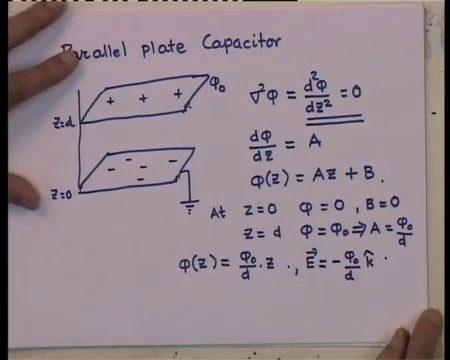 Parallel plate Capacitor
+ + + φ₀
z=d
- - - - - -
z=0
∇²φ = d²φ/dz² = 0
dφ/dz = A
φ(z) = Az + B .
At z=0 φ=0 , B=0
z=d φ=φ₀ ⇒ A = φ₀/d
φ(z) = φ₀/d . z . , E⃗ = - φ₀/d k̂ .